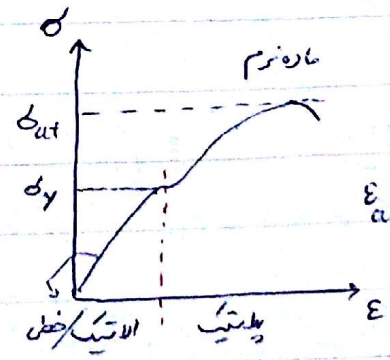 σ
ماده نرم
σut
σy
εa
ε
الاتیک/خطی
پلاتیک